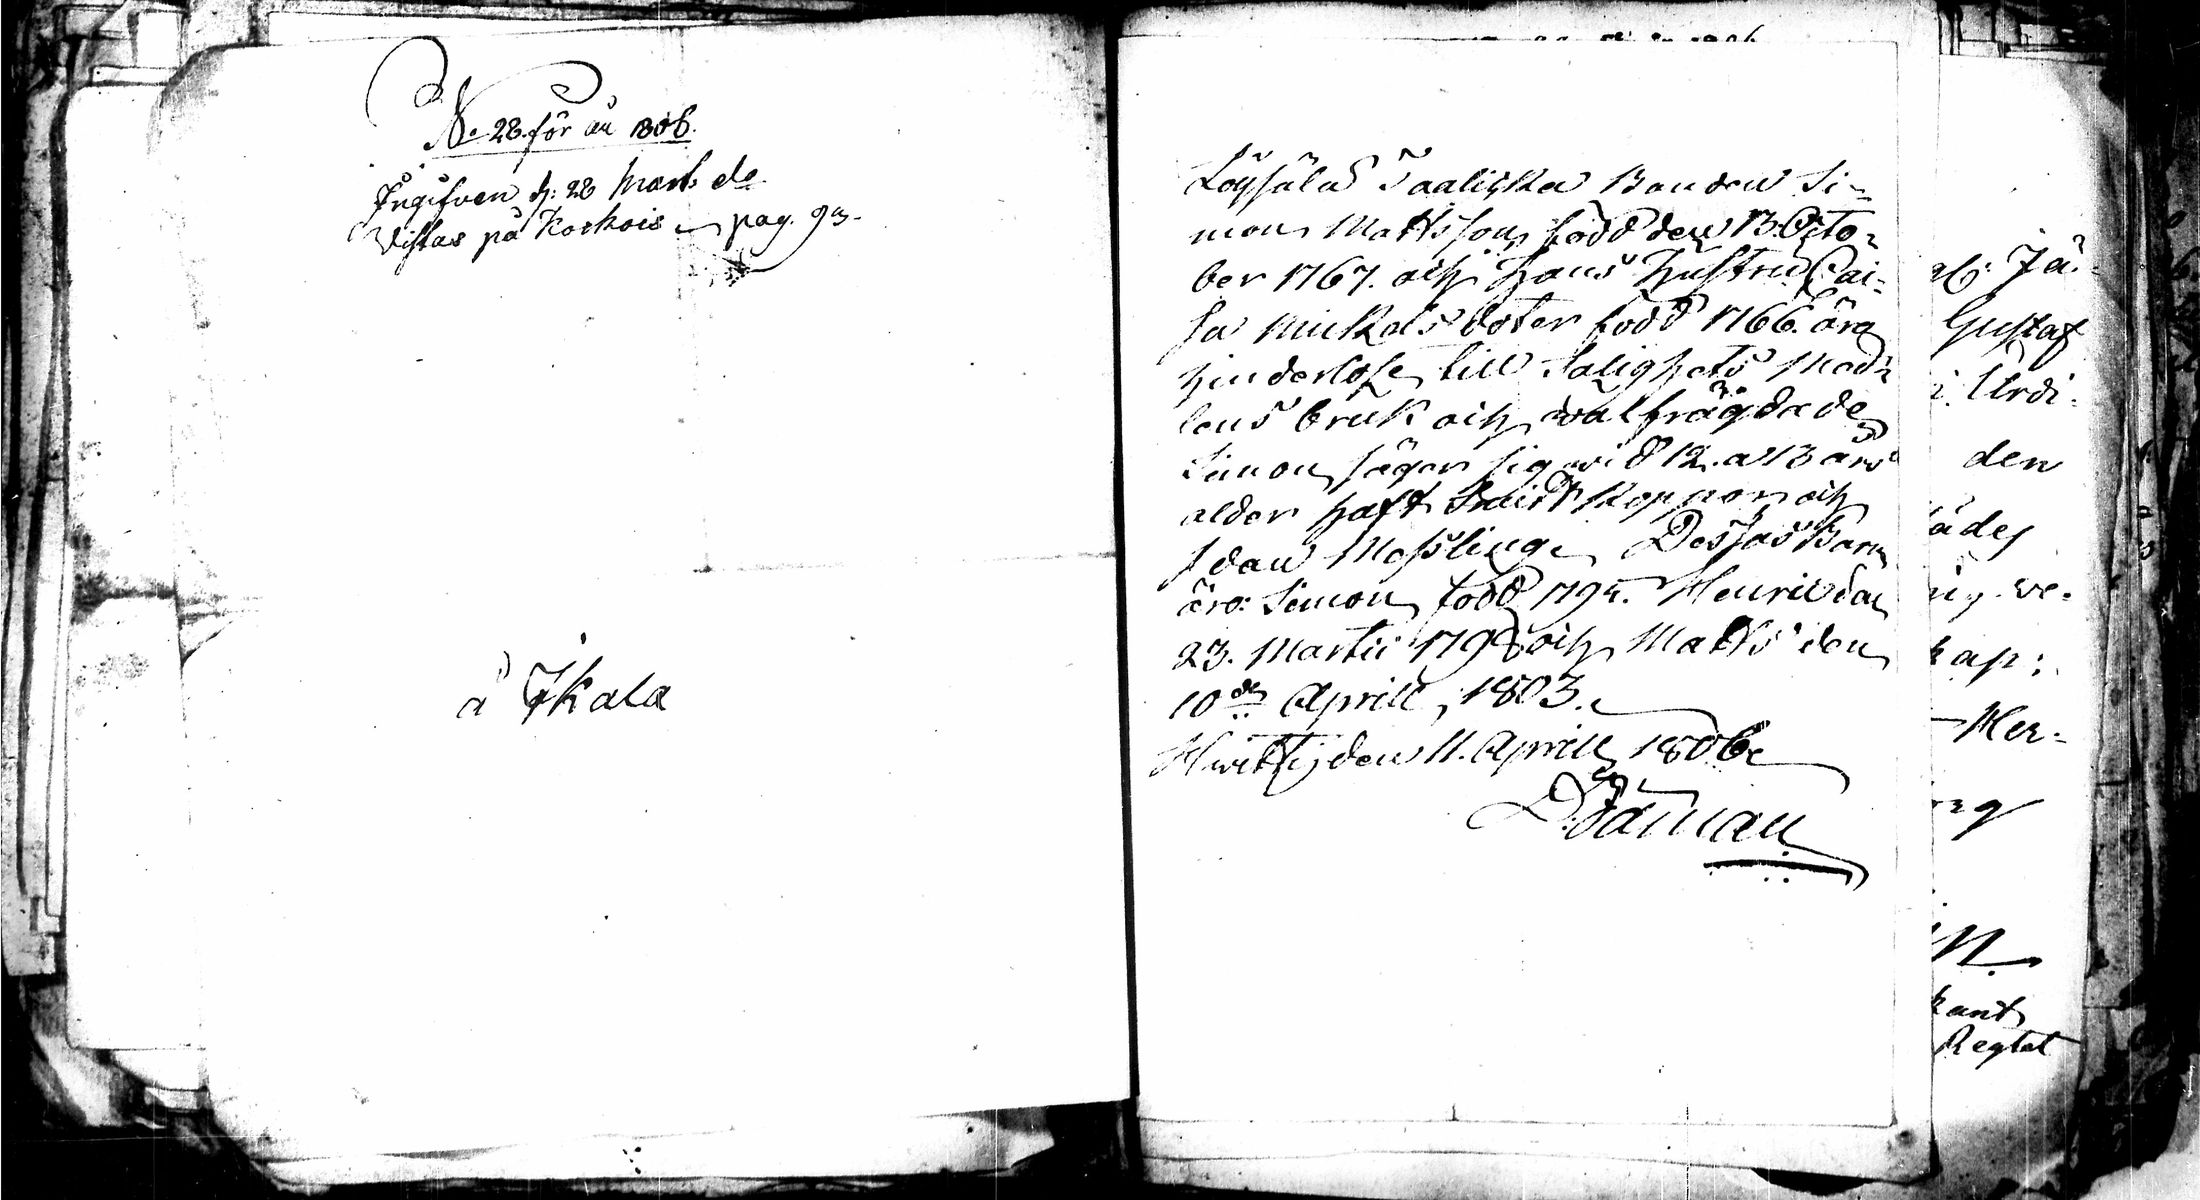 No 28. för åu 1806.
Ingifven d: 28 Mart: do
Vistas på Korkois pag. 93.
å Ikala
Löysälä Taaliska Bonden Si-
mon Mattsson född den 13. Octo-
ber 1767. och Hans Hustru Cai-
sa Mickelsdoter född 1766. äro
hinderlöse till Salighets Med-
lens bruk och wälfrägdade
Simon säger sig wid 12. a 13 års
alder haft Koppor och
sedan Messlinge Dessas Barn
äro: Simon född 1794. Henric den
23. Martii 1798 och Matts den
10de Aprill 1803.
Hwittis den 11. Aprill 1806
D. Ödman
Gustaf
den
kap:
Her-
kant
Regtet